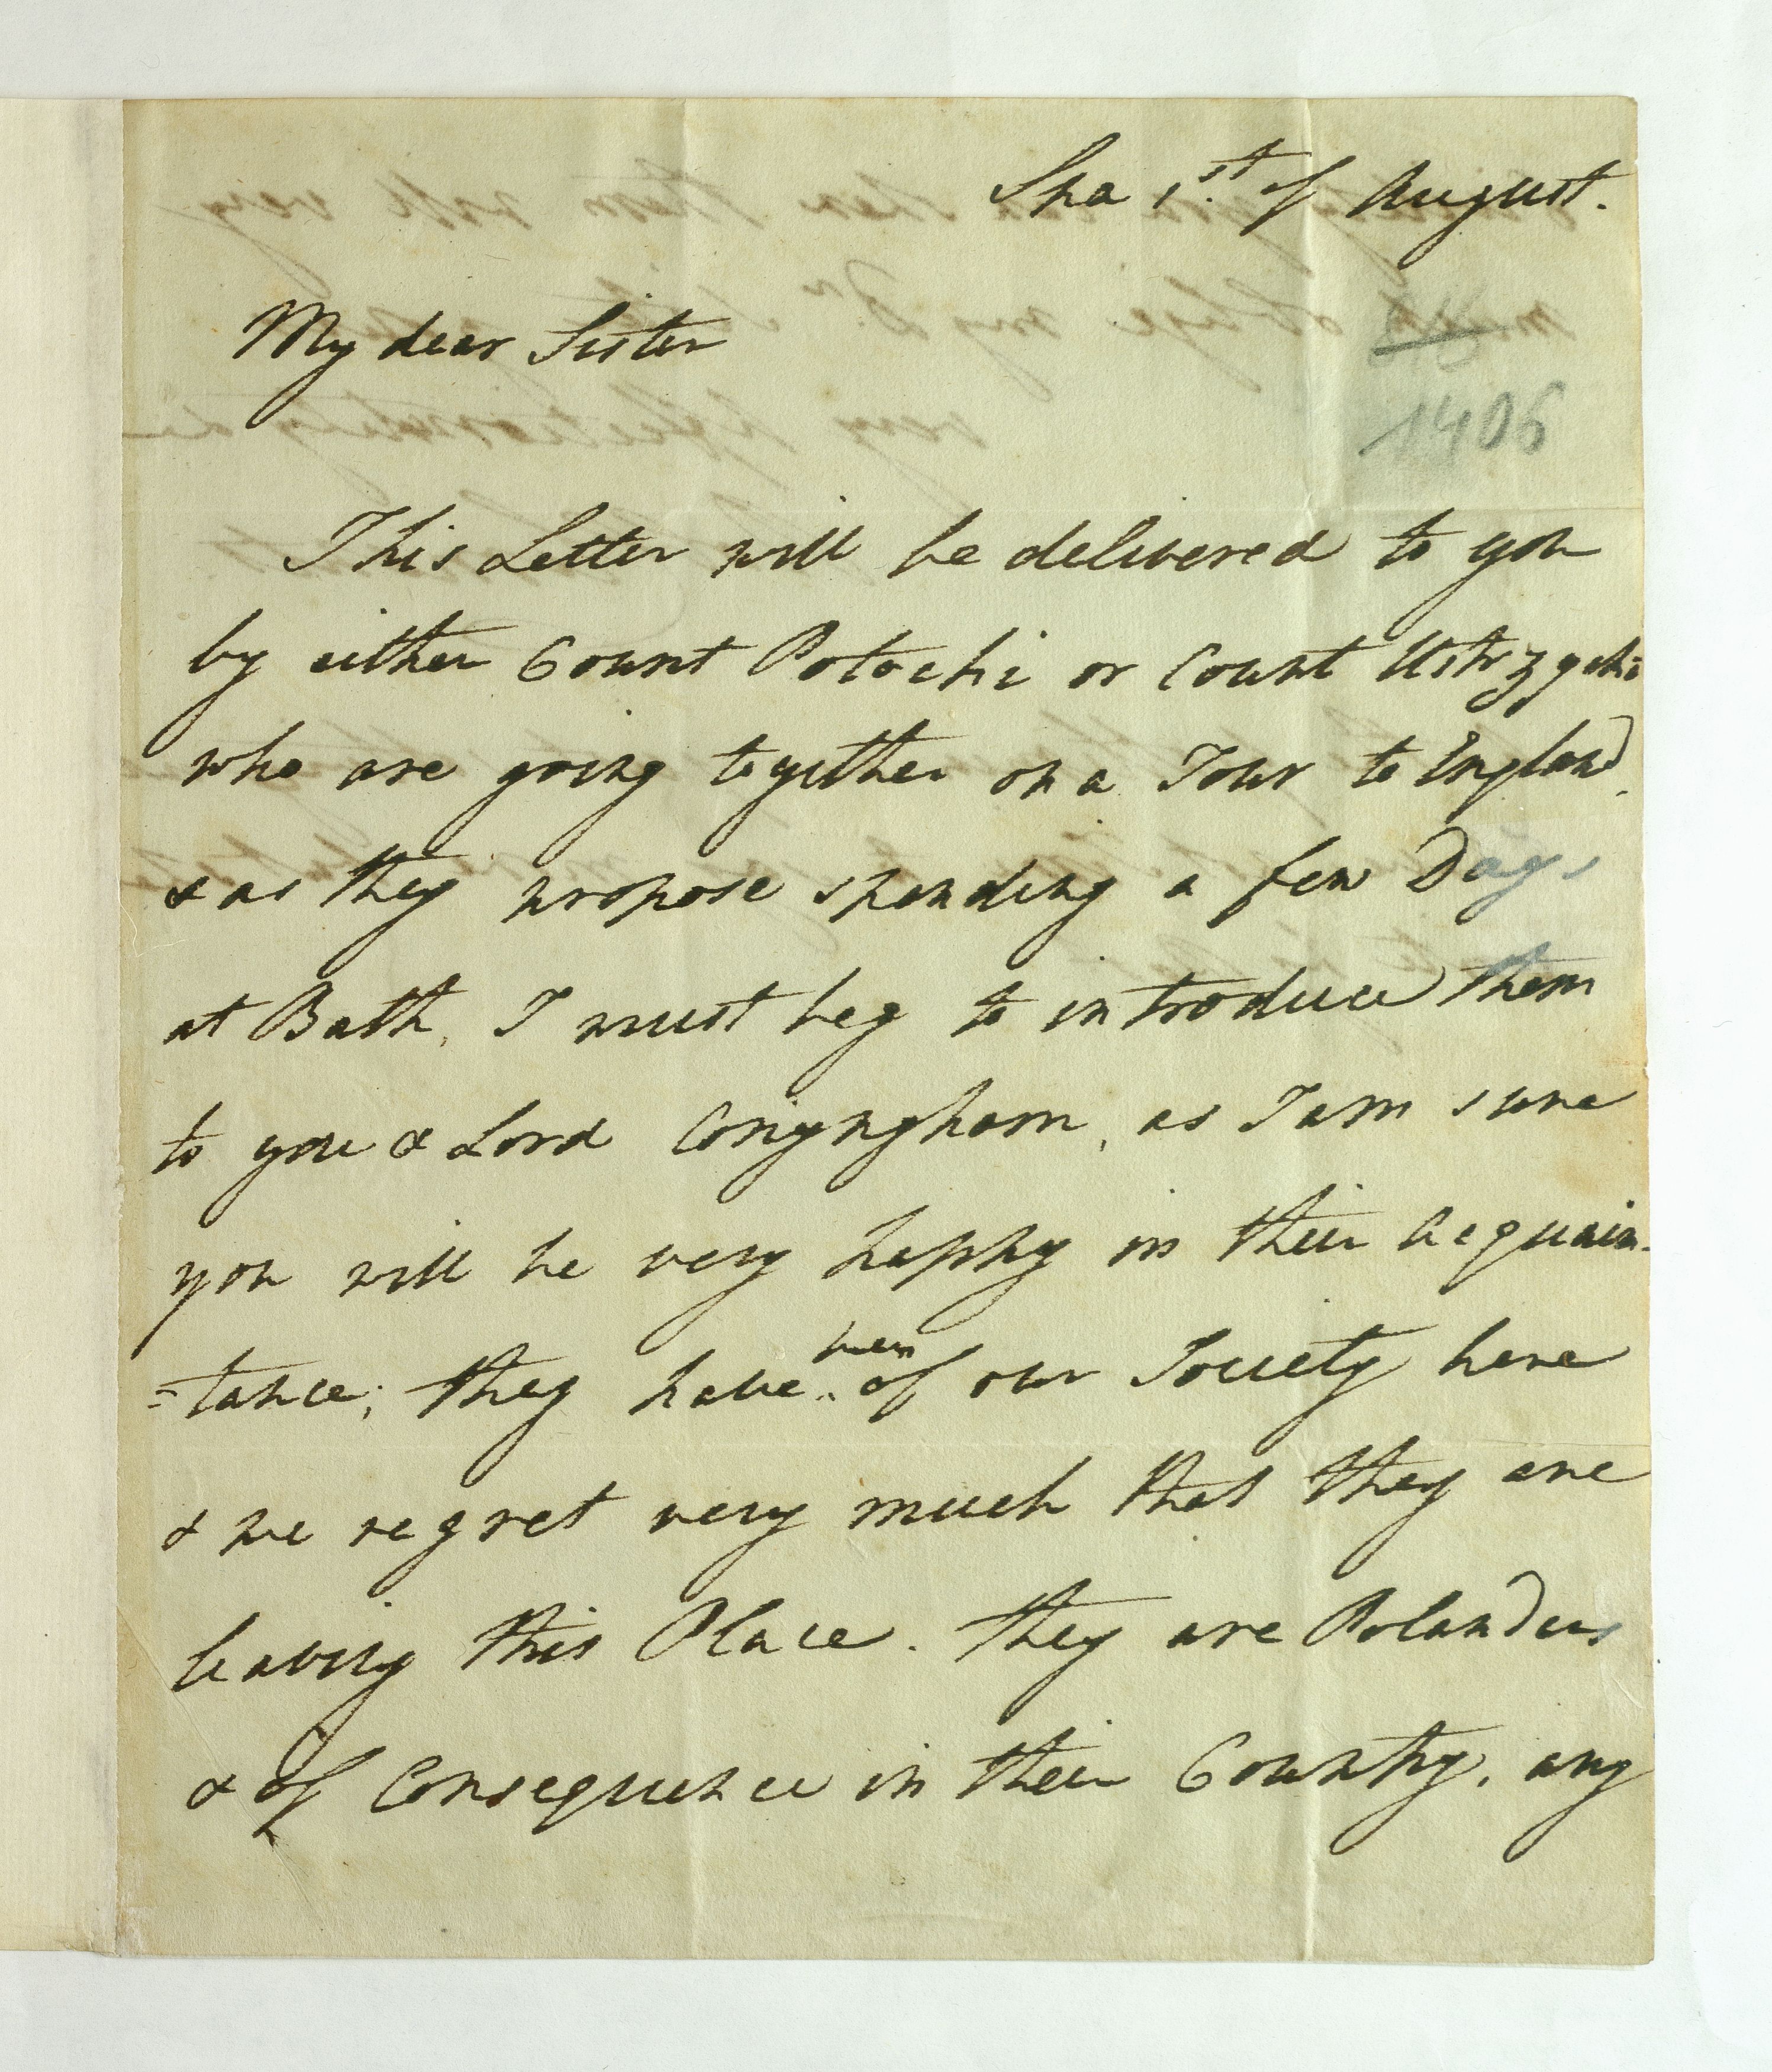 Spa 1st. of August.
My dear Sister
1406
This Letter will be delivered to you
by either Count Potocki or Count Ustrzycki
who are going together on a Tour to England,
& as they propose spending a few Days
at Bath, I must beg to introduce them
to you & Lord Conyngham, as I am sure
you will be very happy in their Acquain-
=tance; they have been of our Society here
& we regret very much that they are
leaving this Place. They are Polanders
& of Consequence in their Country, any